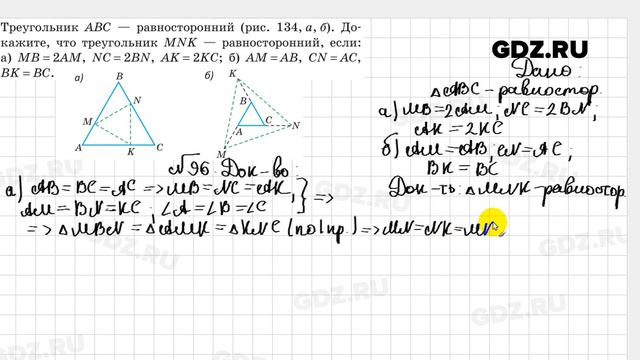 Треугольник ABC — равносторонний (рис. 134, а, б). До-
кажите, что треугольник MNK — равносторонний, если:
а) MB = 2AM, NC = 2BN, AK = 2KC; б) AM = AB, CN = AC,
BK = BC.
GDZ.RU
а)
B
N
M
A
K
C
б)
K
B
A
C
N
M
Дано:
△ABC – равностор.
а) MB = 2AM; NC = 2BN;
AK = 2KC
б) AM = AB; CN = AC;
BK = BC
Док-ть: △MNK – равностор
№96 Док-во:
а) AB = BC = AC => MB = NC = AK,
AM = BN = KC; ∠A = ∠B = ∠C } =>
=> △MBN = △AMK = △KNC (по I пр.) => MN = NK = MK,
GDZ.RU